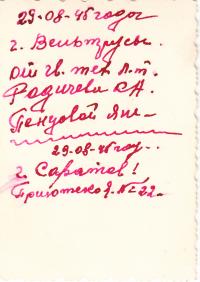 29-08-45 годы
г. Вельтрусы.
От гв. тех л.т.
Родичева С.А.
Пенцовой Яне
29-08-45 год..
г. Саратов!
Приютская №-22.